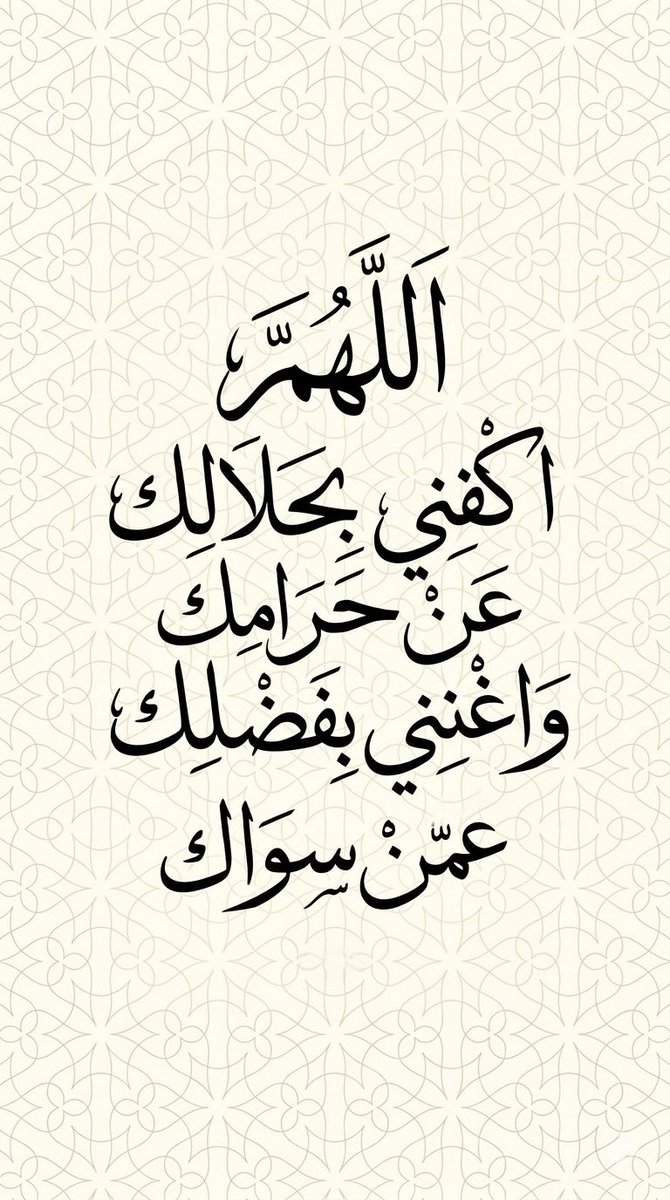 اَللَّهُمَّ
اكْفِنِي بِحَلَالِك
عَنْ حَرَامِك
وَاغْنِنِي بِفَضْلِك
عمّنْ سِوَاك